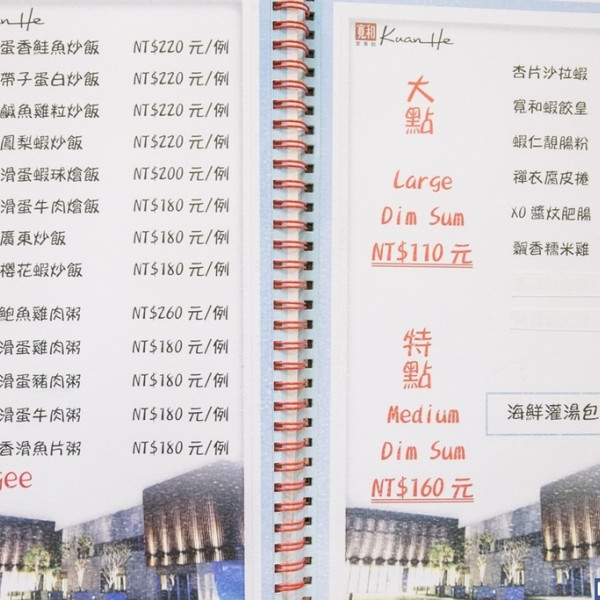 an He
蛋香鮭魚炒飯 NT$220 元/例
帶子蛋白炒飯 NT$220 元/例
鹹魚雞粒炒飯 NT$220 元/例
鳳梨蝦炒飯 NT$220 元/例
滑蛋蝦球燴飯 NT$200 元/例
滑蛋牛肉燴飯 NT$180 元/例
廣東炒飯 NT$180 元/例
櫻花蝦炒飯 NT$180 元/例
鮑魚雞肉粥 NT$260 元/例
滑蛋雞肉粥 NT$180 元/例
滑蛋豬肉粥 NT$180 元/例
滑蛋牛肉粥 NT$180 元/例
香滑魚片粥 NT$180 元/例
gee
寬和 Kuan He
大點
Large
Dim Sum
NT$110 元
杏片沙拉蝦
寬和蝦餃皇
蝦仁靚腸粉
禪衣腐皮捲
XO 醬炆肥腸
飄香糯米雞
特點
Medium
Dim Sum
NT$160 元
海鮮灌湯包